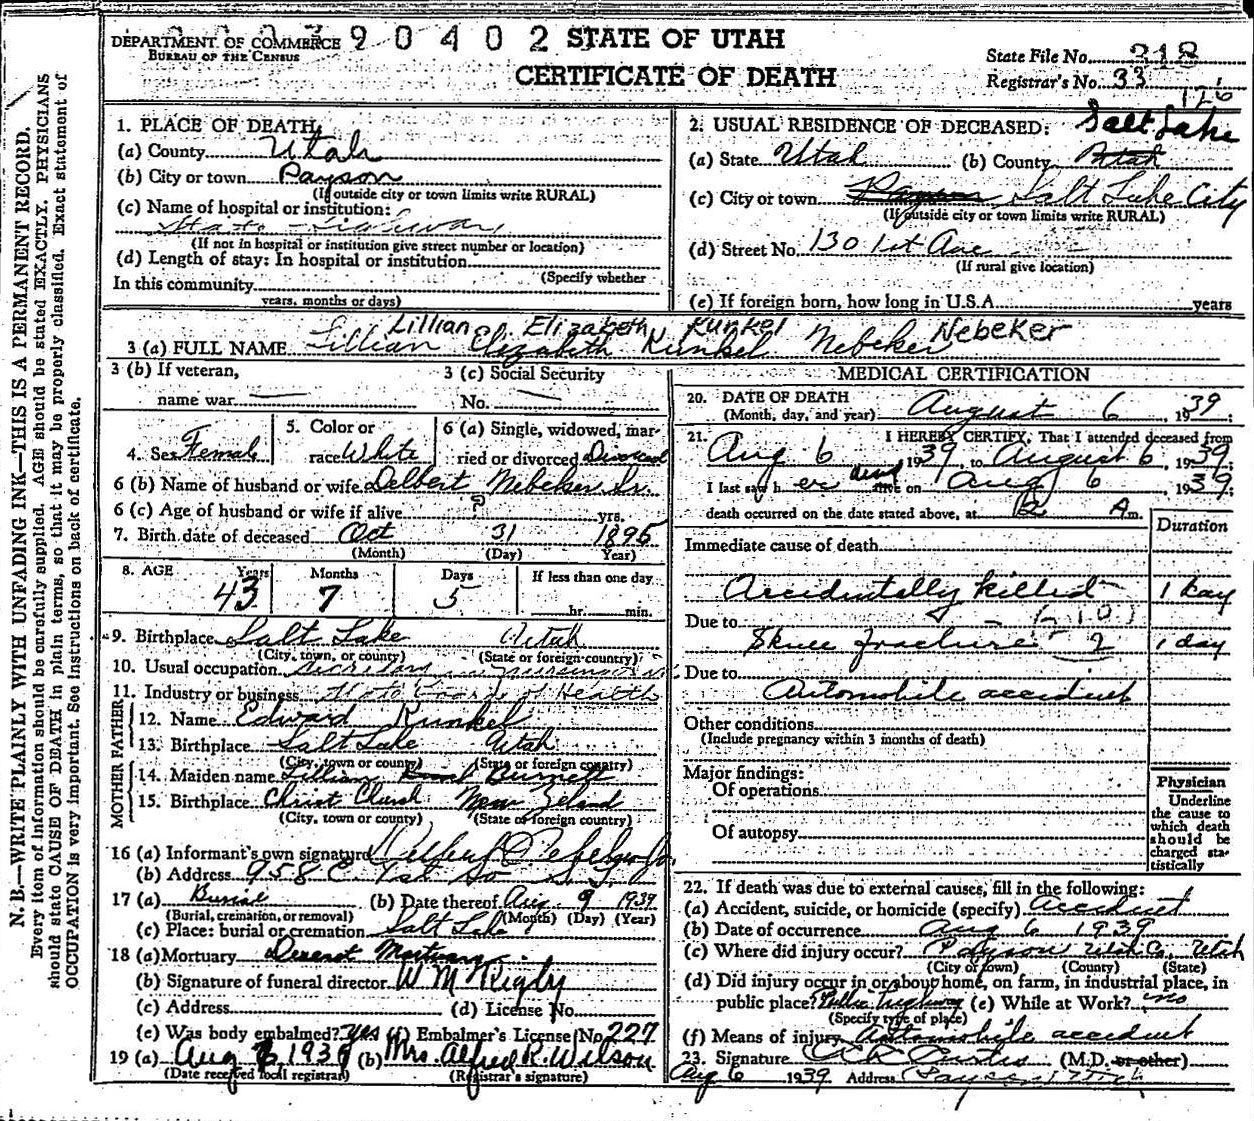 N. B.—WRITE PLAINLY WITH UNFADING INK—THIS IS A PERMANENT RECORD.
Every item of information should be carefully supplied. AGE should be stated EXACTLY. PHYSICIANS
should state CAUSE OF DEATH in plain terms, so that it may be properly classified. Exact statement of
OCCUPATION is very important. See instructions on back of certificate.
DEPARTMENT OF COMMERCE
BUREAU OF THE CENSUS
9 0 4 0 2
STATE OF UTAH
CERTIFICATE OF DEATH
State File No. 318
Registrar's No. 33
126
1. PLACE OF DEATH
(a) County Utah
(b) City or town Payson
(If outside city or town limits write RURAL)
(c) Name of hospital or institution:
State
(If not in hospital or institution give street number or location)
(d) Length of stay: In hospital or institution
(Specify whether
In this community
years, months or days)
2. USUAL RESIDENCE OF DECEASED: Salt Lake
(a) State Utah (b) County Utah
(c) City or town Payson Salt Lake City
(If outside city or town limits write RURAL)
(d) Street No. 130 1st Ave
(If rural give location)
(e) If foreign born, how long in U.S.A. years
Lillian Elizabeth Kunkel Nebeker
3 (a) FULL NAME Lillian Elizabeth Kunkel Nebeker
3 (b) If veteran,
name war
3 (c) Social Security
No.
4. Sex Female
5. Color or
race White
6 (a) Single, widowed, mar-
ried or divorced Divorced
6 (b) Name of husband or wife Delbert Nebeker Sr.
6 (c) Age of husband or wife if alive ? yrs.
7. Birth date of deceased Oct 31 1895
(Month) (Day) Year)
8. AGE Years Months Days If less than one day
43 7 5 hr. min.
9. Birthplace Salt Lake Utah
(City, town, or county) (State or foreign country)
10. Usual occupation
11. Industry or business State Board of Health
FATHER
12. Name Edward Kunkel
13. Birthplace Salt Lake Utah
(City, town or county) (State or foreign country)
MOTHER
14. Maiden name Lillian Burnett
15. Birthplace Christ Church New Zeland
(City, town or county) (State or foreign country)
16 (a) Informant's own signature
(b) Address 958 E 1st So S L
17 (a) Burial (b) Date thereof Aug 9 1939
(Burial, cremation, or removal) (Month) (Day) (Year)
(c) Place: burial or cremation Salt Lake
18 (a) Mortuary Deseret Mortuary
(b) Signature of funeral director W M Rigby
(c) Address (d) License No.
(e) Was body embalmed? Yes (f) Embalmer's License No. 227
19 (a) Aug 1939 (b) Mrs. Alfred R. Wilson
(Date received local registrar) (Registrar's signature)
MEDICAL CERTIFICATION
20. DATE OF DEATH
(Month, day, and year) August 6, 1939
21. I HEREBY CERTIFY, That I attended deceased from
Aug 6 1939 to August 6, 1939
I last saw her dead alive on Aug 6, 1939
death occurred on the date stated above, at A m.
Duration
Immediate cause of death
Accidentally killed 1 day
Due to
fracture 1 day
Due to
Automobile accident
Other conditions
(Include pregnancy within 3 months of death)
Major findings:
Of operations
Of autopsy
Physician
Underline
the cause to
which death
should be
charged sta-
tistically
22. If death was due to external causes, fill in the following:
(a) Accident, suicide, or homicide (specify) Accident
(b) Date of occurrence Aug 6 1939
(c) Where did injury occur? Payson Utah Co. Utah
(City or town) (County) (State)
(d) Did injury occur in or about home, on farm, in industrial place, in
public place? Public highway (e) While at Work? no
(Specify type of place)
(f) Means of injury Automobile accident
23. Signature Curtis (M.D. or other)
Aug 6 1939 Address Payson Utah